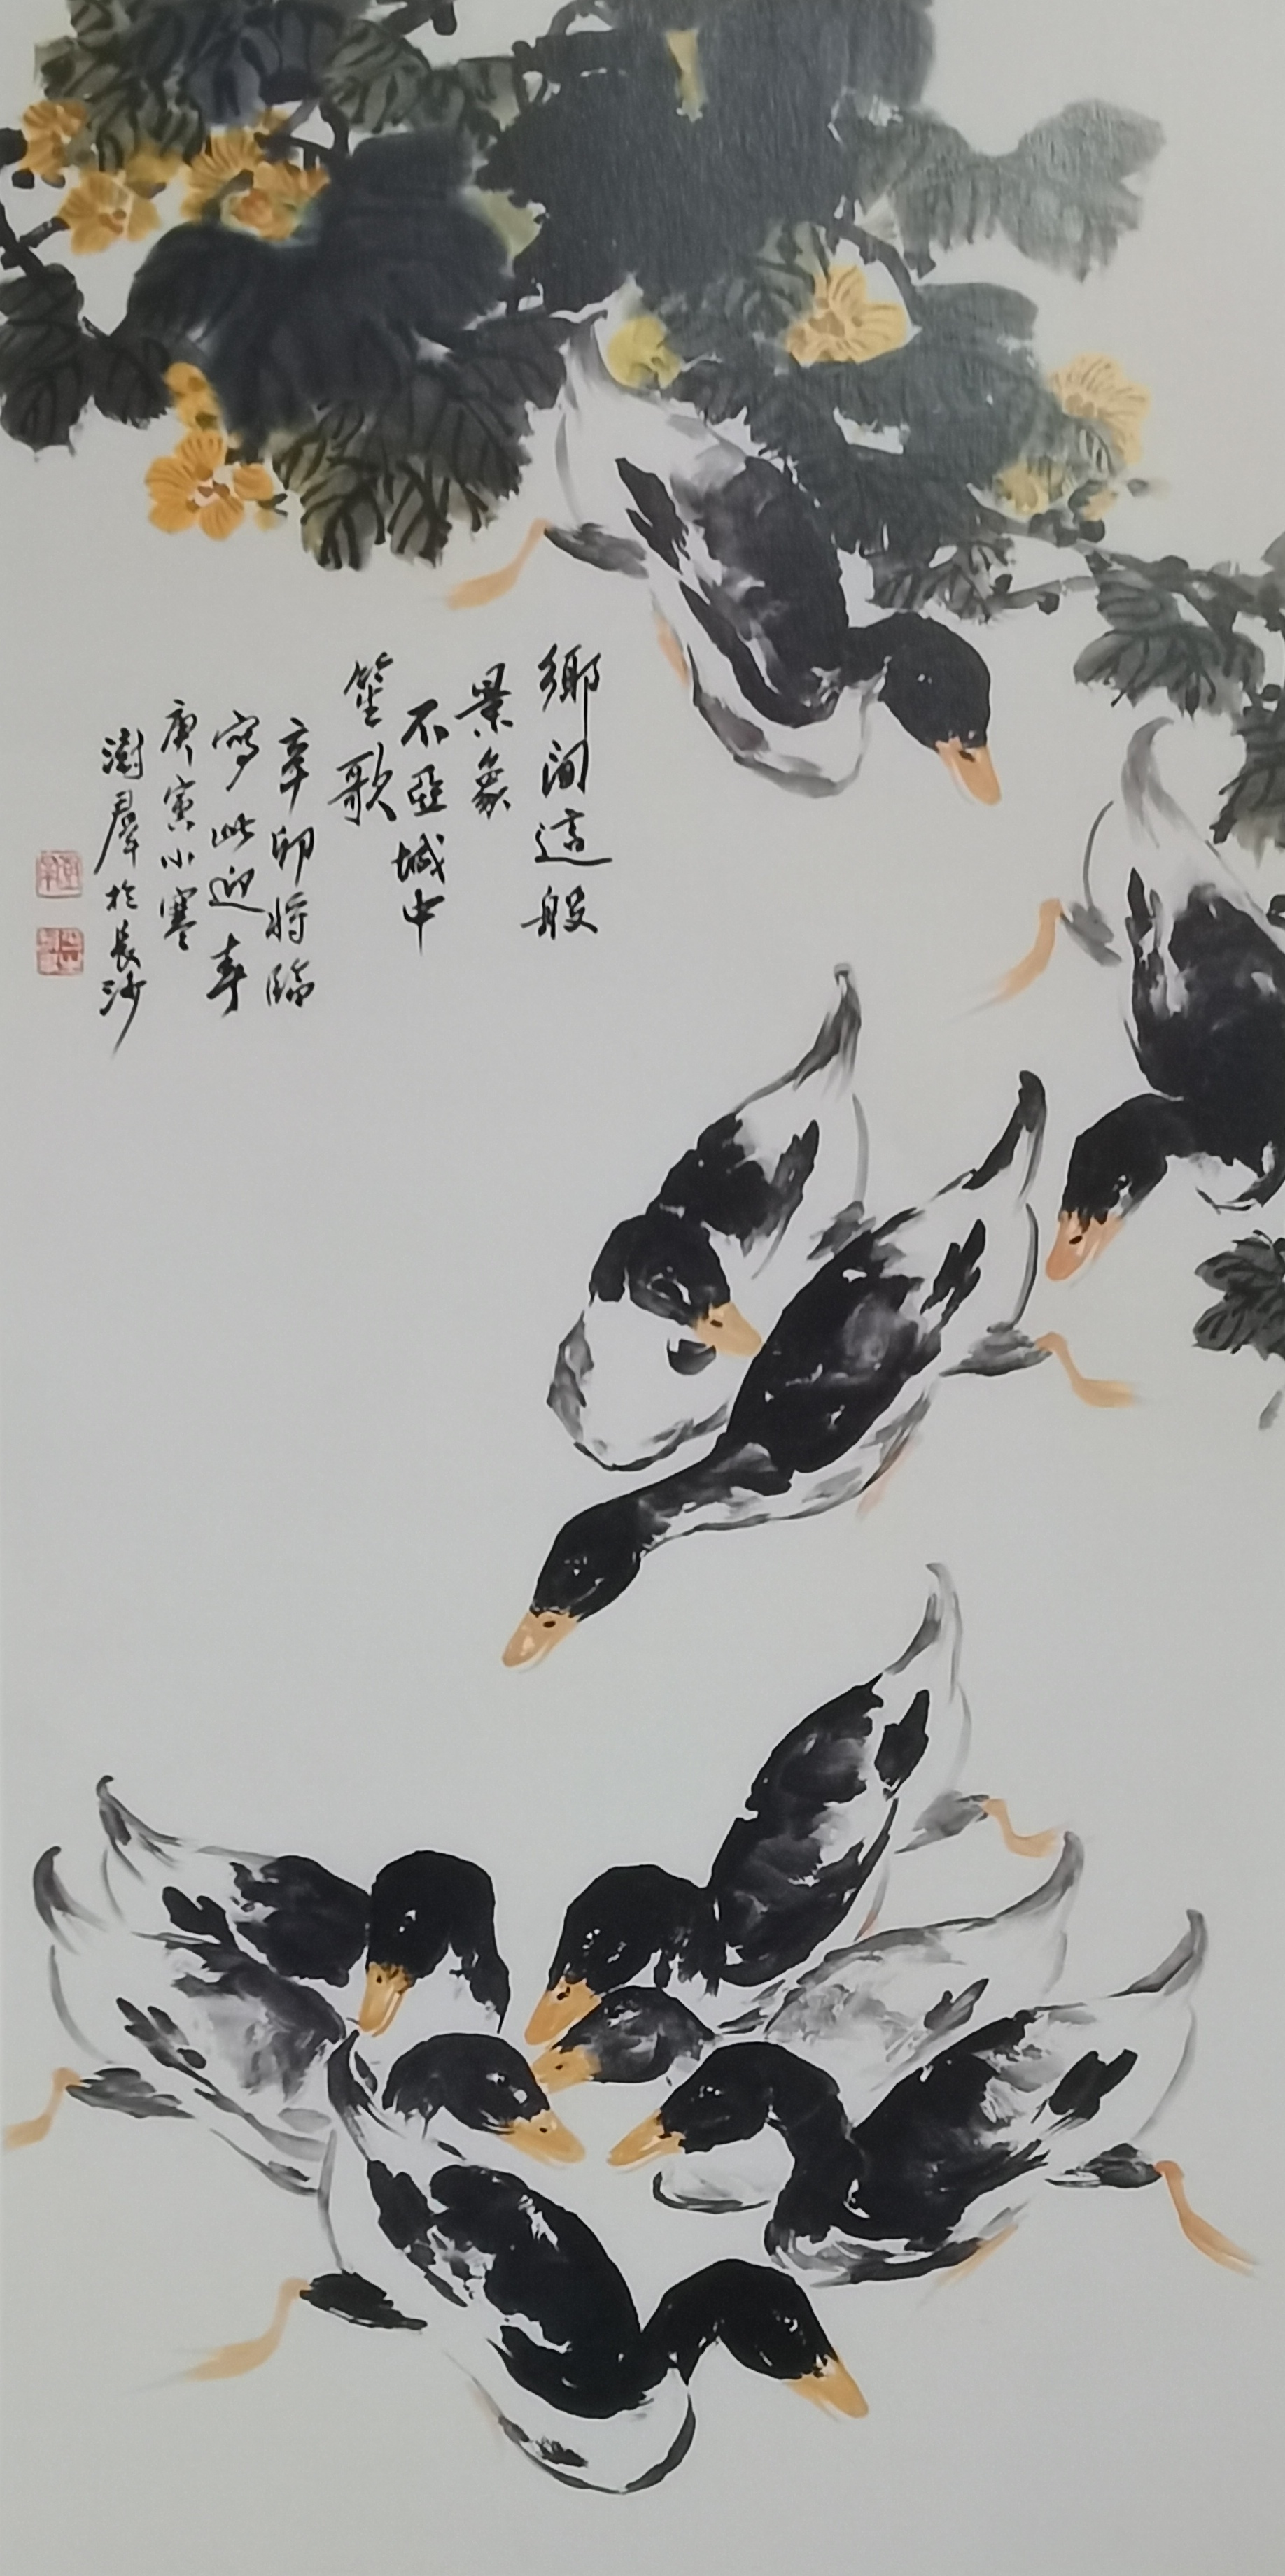 鄉間這般
景象
不亞城中
笙歌
辛卯將臨
寫此迎春
庚寅小寒
澍羣於長沙